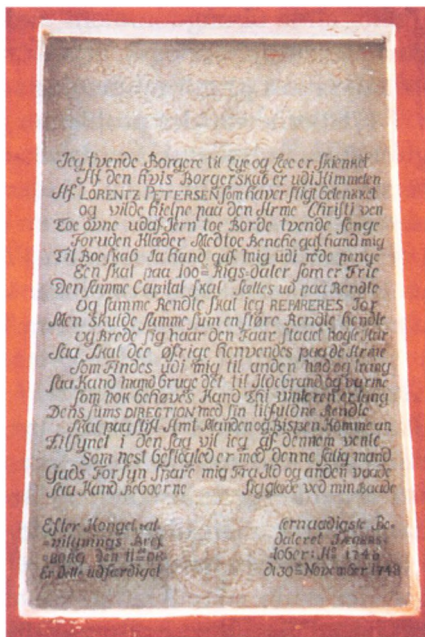 Jeg tvende Borgere til Eye og Lee er skienket
Af den hvis Borgerskab er udi Himmelen
Af LORENTZ PETERSEN som haver sligt betenkket
og vilde hielpe paa den Arme Christi ven
Toe ovne udaf Jern toe Borde tvende senge
Foruden Klæder Med toe Benche gaf hand mig
Til Boeskab Ja hand gaf mig udi rede penge
Een skal paa 100 Rigs-daler som er Frie
Den samme Capital skal Settes ud paa Rendte
og samme Rendte skal ieg REPARERES for
Men skulde samme sum en større Rendte hendte
og Brede sig naar den Faar staaet nogle Aar
saa skal det øfrige henvendes paa de Arme
som Findes udi mig til anden nød og trang
saa Kand mand bruge det til Ildebrand og varme
som nok behøves Kand Thi vinteren er lang
Dens sums DIRECTION med sin tilfuldne Rendte
skal paa Stift Amt Manden og Bispen Komme an
Tilsynet i den sag vil ieg af dennem vente
Som nest beslegted er med denne salig mand
Guds Forsyn spare mig Fra Ild og anden vaade
saa Kand Beboerne sig glæde ved min Baade
Efter Konget al- lernaadigste Be-
villnings Bref dateret Jægers-
BORG den 11 oc- tober: Aº 1748
Er dette udfærdiget d: 30 November 1748